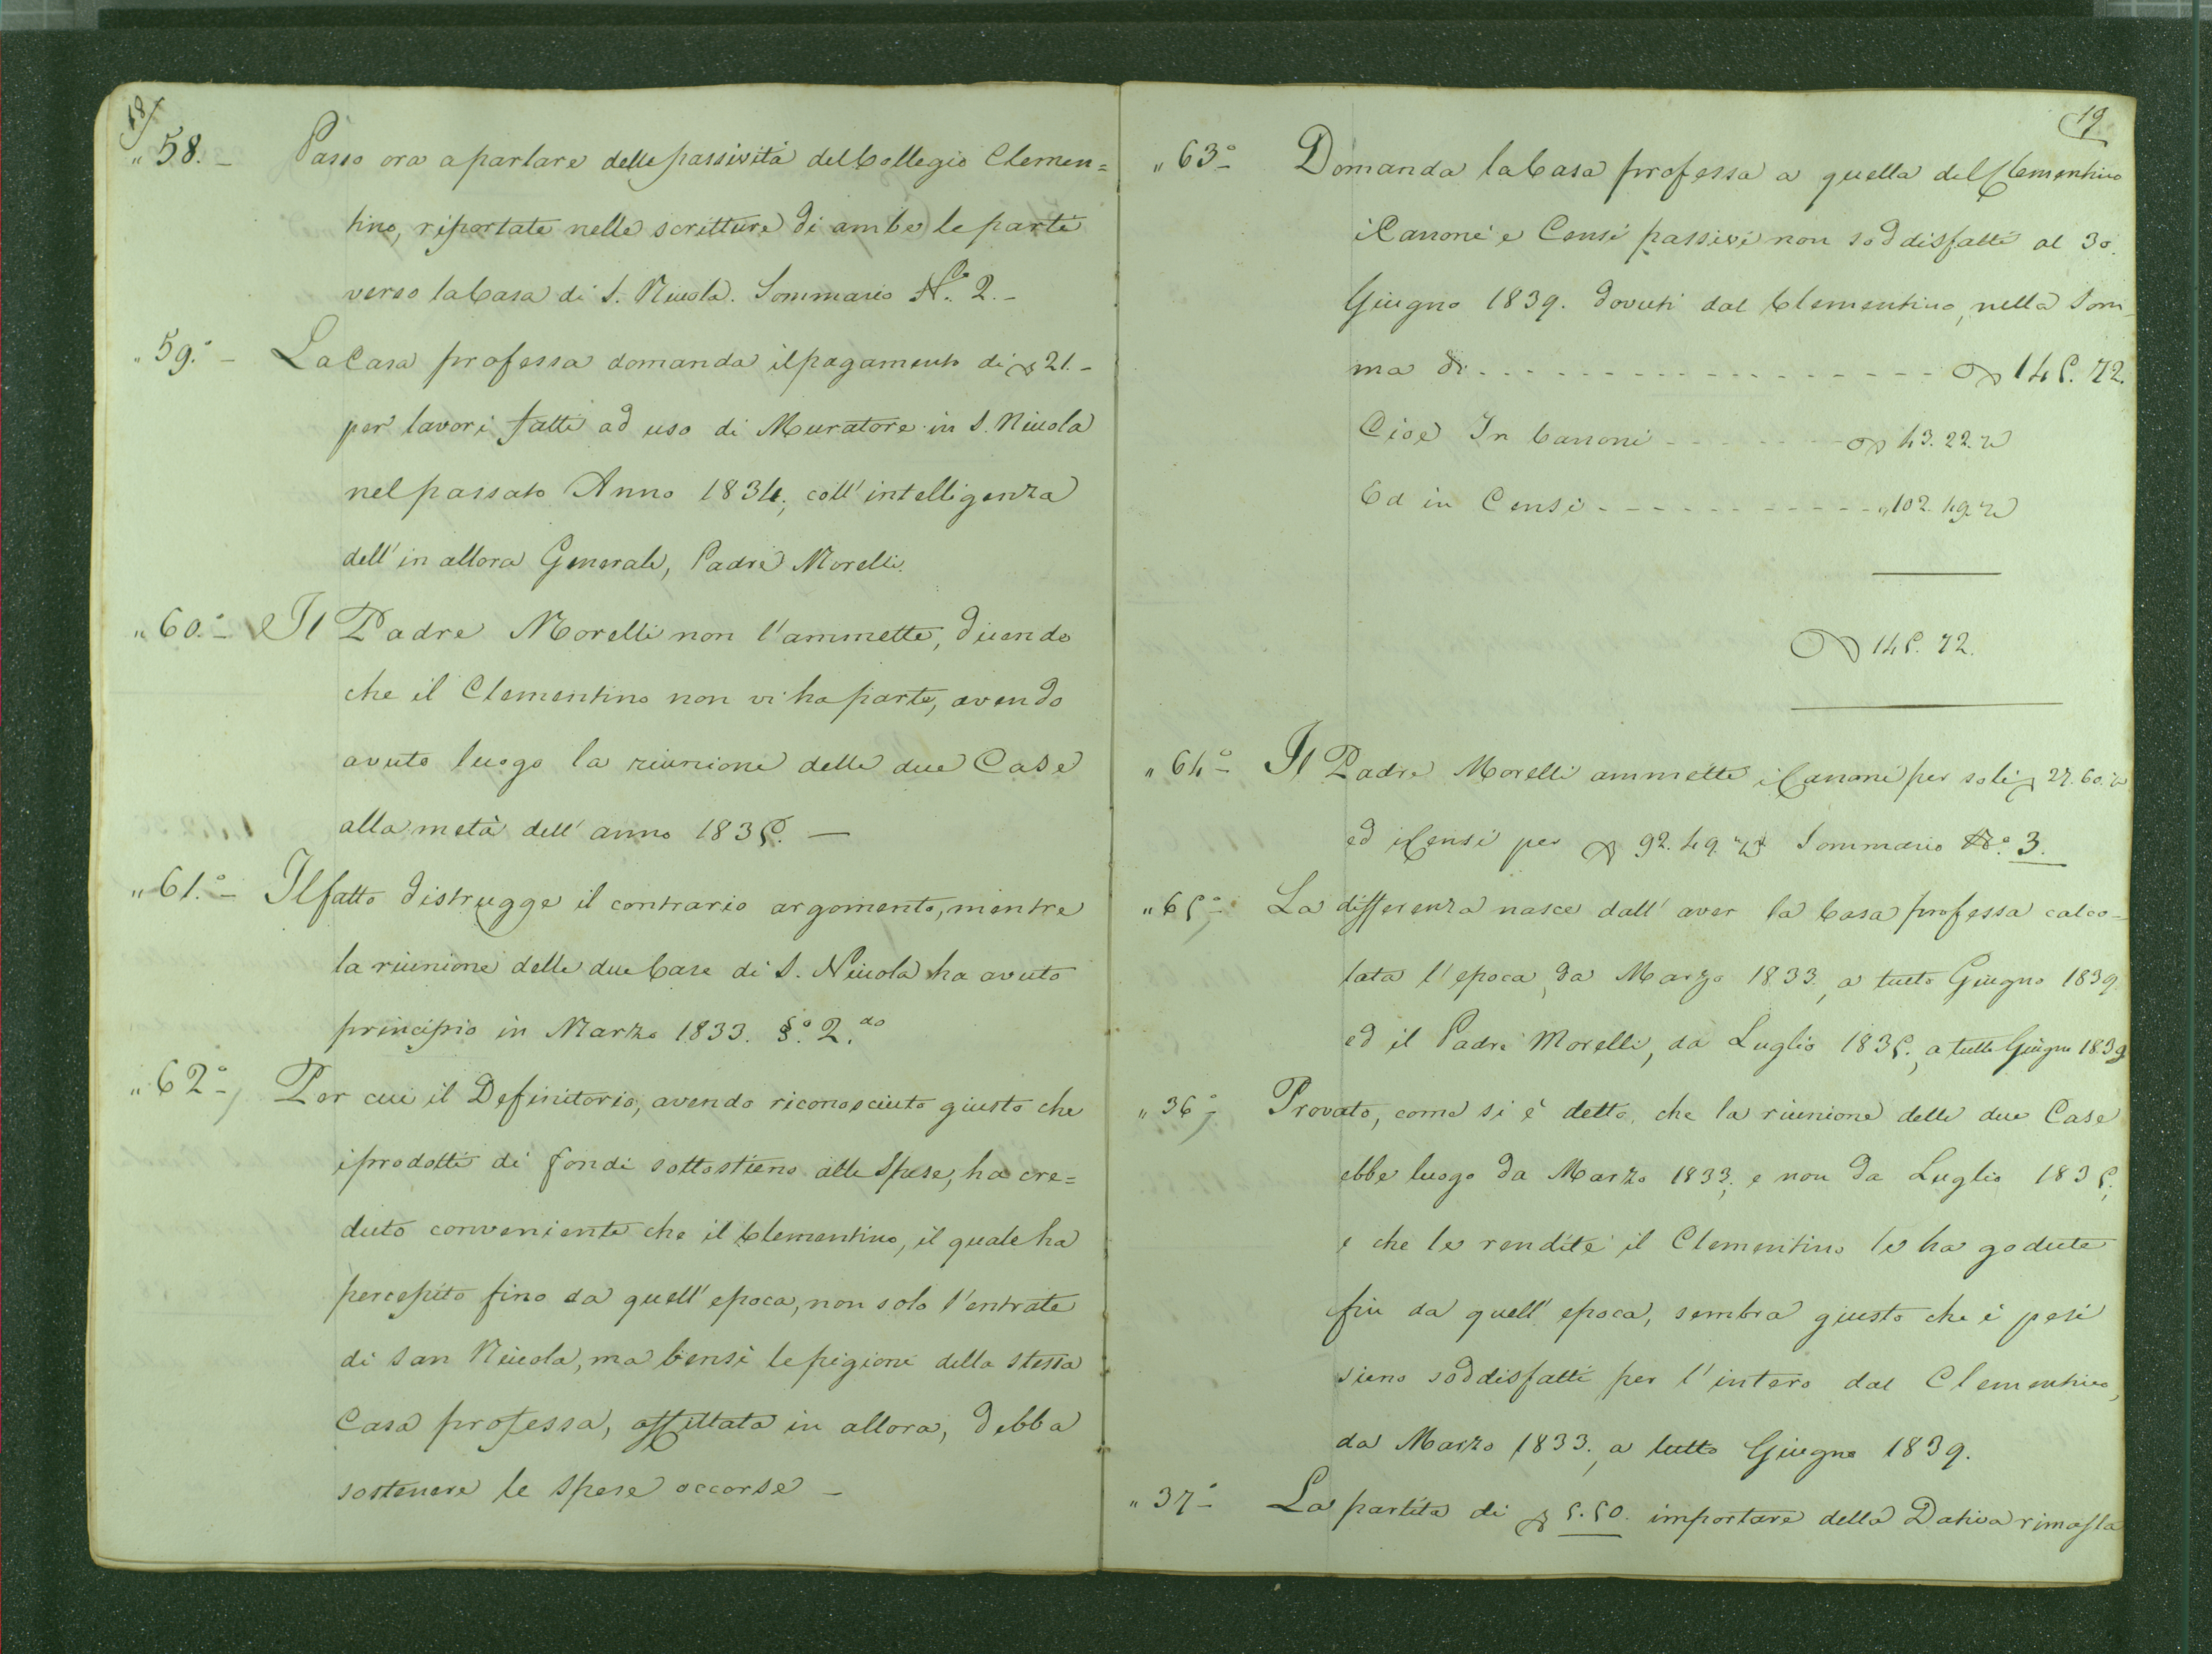 18
" 58. - Passo ora a parlare delle passività del Collegio Clemen=
tino, riportate nelle scritture di ambe le parti
verso la Casa di S. Nicola. Sommario N.º 2. -
" 59.º - La Casa professa domanda il pagamento di 21. -
per lavori fatti ad uso di Muratore in S. Nicola
nel passato Anno 1834, coll' intelligenza
dell' in allora Generale, Padre Morelli.
" 60.º - Il Padre Morelli non l'ammette, dicendo
che il Clementino non vi ha parte, avendo
avuto luogo la riunione delle due Case
alla metà dell' anno 1835. —
" 61.º - Il fatto distrugge il contrario argomento, mentre
la riunione delle due Case di S. Nicola ha avuto
principio in Marzo 1833. §.º 2.do
" 62º - Per cui il Definitorio, avendo riconosciuto giusto che
i prodotti di fondi sottostieno alle Spese, ha cre=
duto conveniente che il Clementino, il quale ha
percepito fino da quell' epoca, non solo l'entrate
di San Nicola, ma bensì le pigioni della stessa
Casa professa, affittata in allora, debba
sostenere le Spese occorse -
19
" 63º - Domanda la Casa professa a quella del Clementino
i Canoni e Censi passivi non soddisfatti al 30.
Giugno 1839. dovuti dal Clementino, nella Som_
ma di - - - - - - - - - - - - - - - - 145. 72.
Cioè In Canoni - - - - - - - - 43. 22.½
Ed in Censi - - - - - - - - - - - " 102. 49.½
145. 72.
" 64º - Il Padre Morelli ammette i Canoni per soli 27. 60. ½
ed i Censi per 92. 49. ½ Sommario N.º 3.
" 65º - La differenza nasce dall' aver la Casa professa calco-
lata l'epoca, da Marzo 1833., a tutto Giugno 1839
ed il Padre Morelli, da Luglio 1835., a tutto Giugno 1839
" 36º - Provato, come si è detto, che la riunione delle due Case
ebbe luogo da Marzo 1833; e non da Luglio 1835;
e che le rendite il Clementino le ha godute
fin da quell' epoca, sembra giusto che i pesi
sieno soddisfatti per l'intero dal Clementino,
da Marzo 1833., a tutto Giugno 1839.
" 37º - La partita di 5. 50. importare della Dativa rimasta